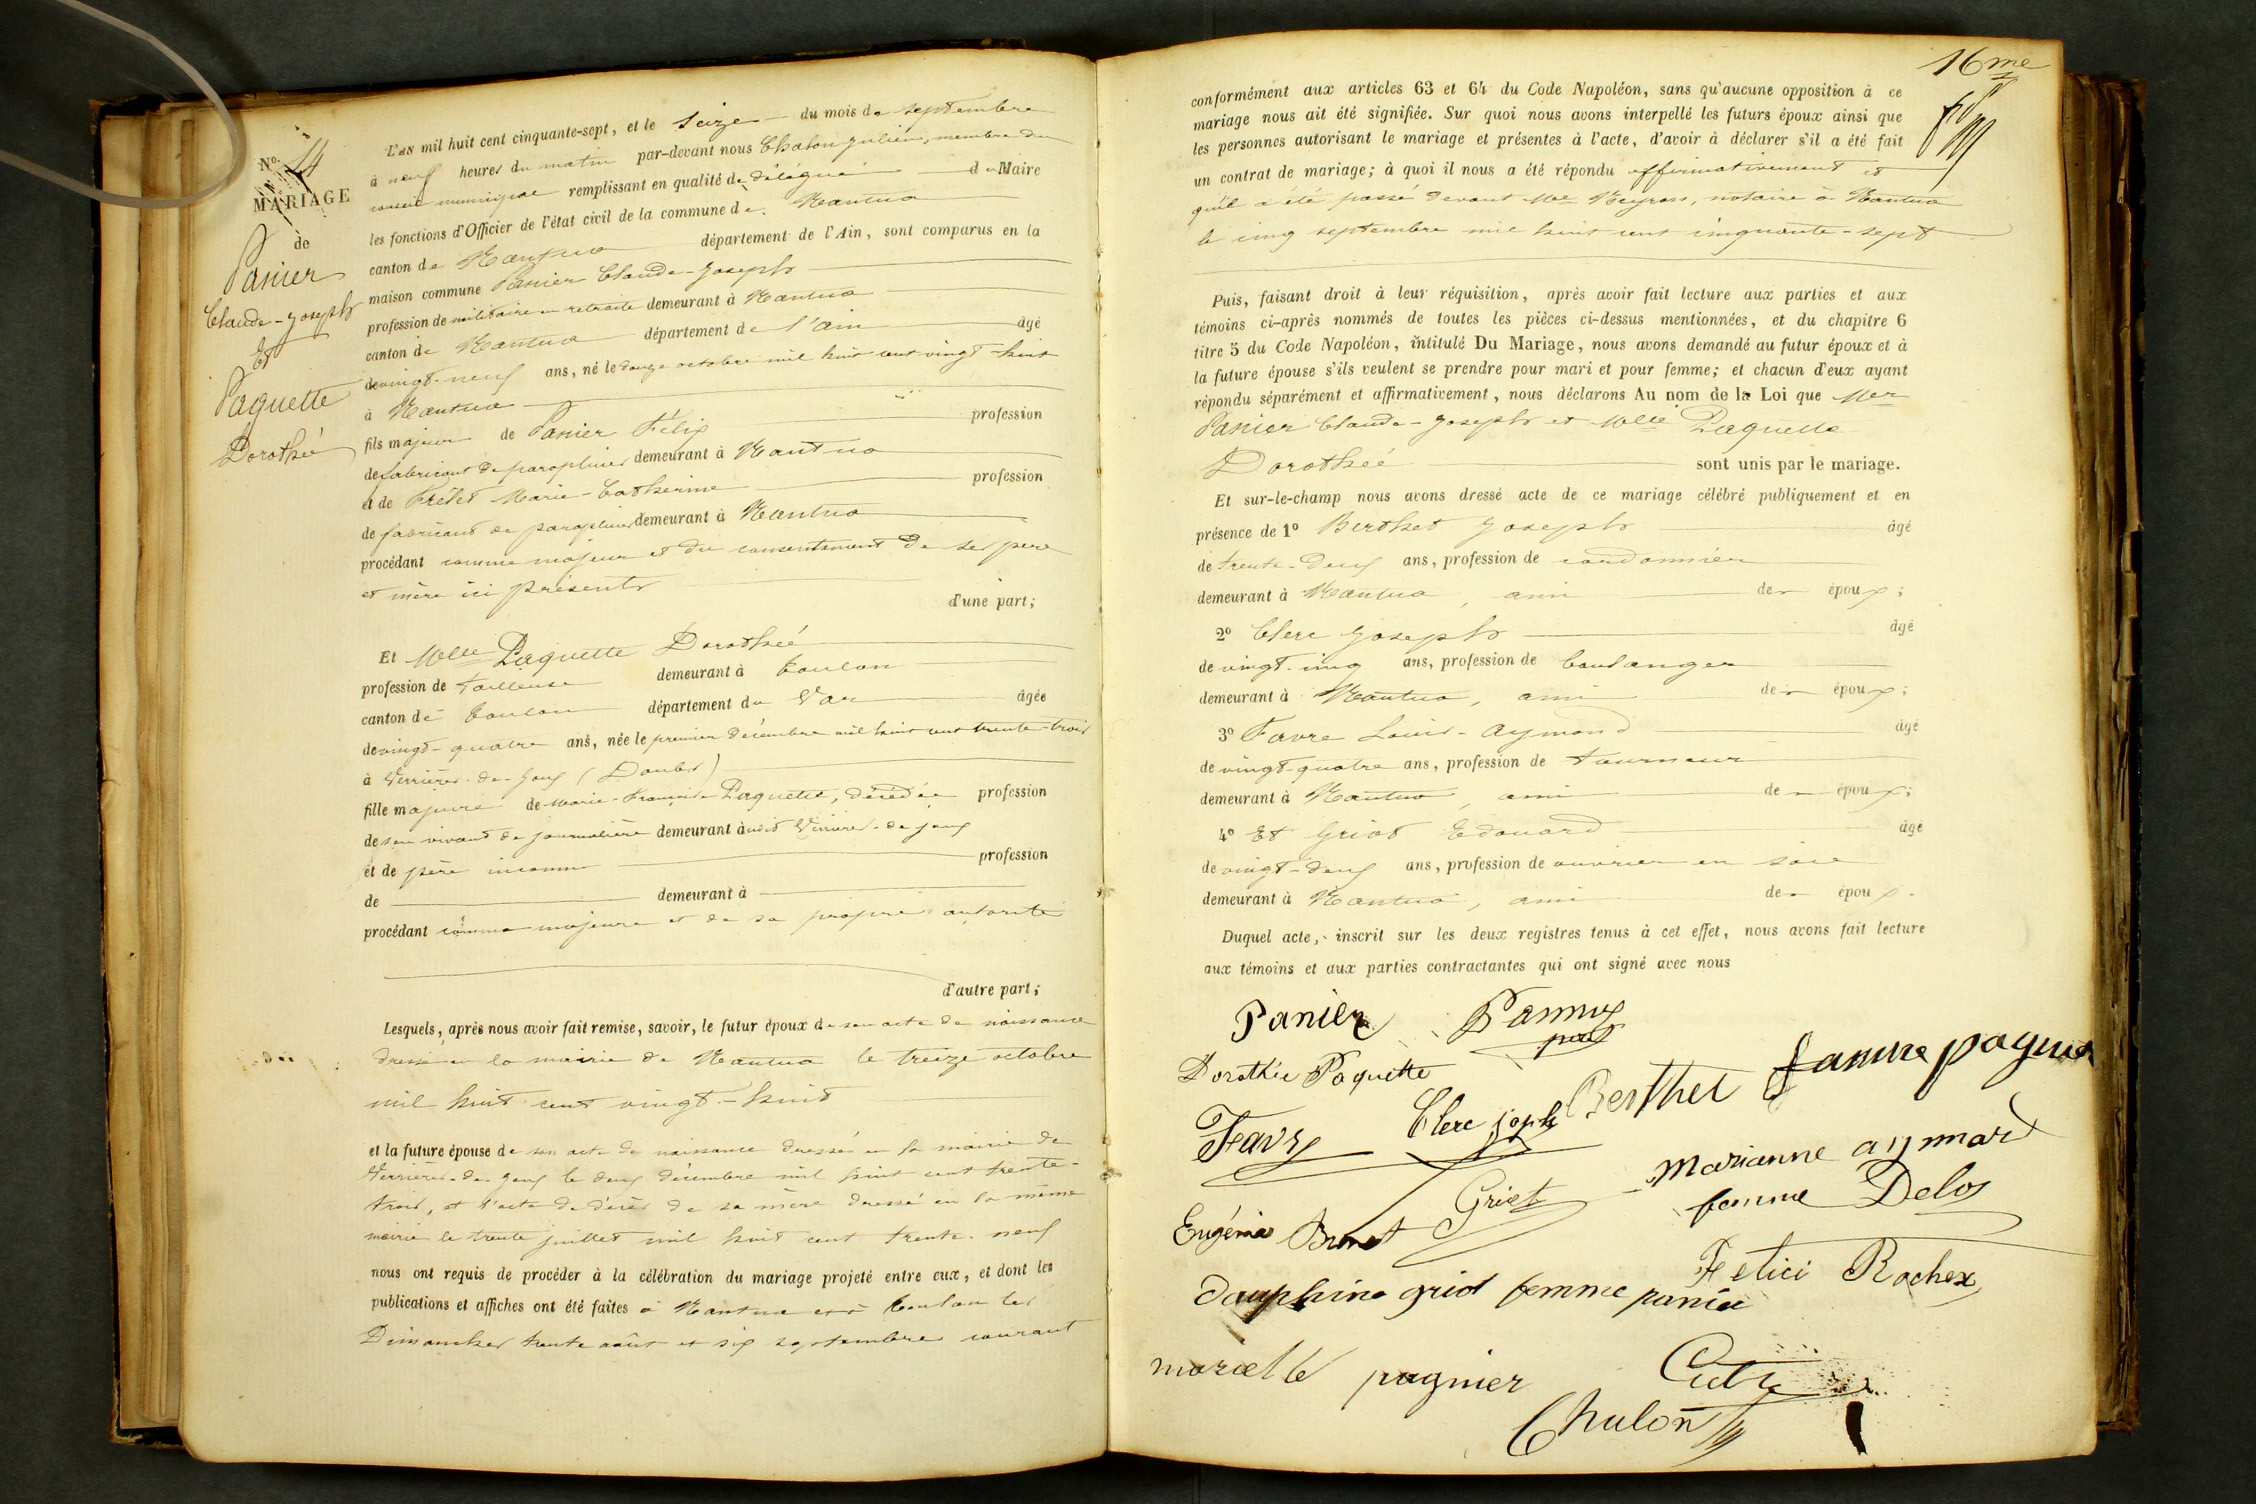 No. 14
MARIAGE
de
Panier
Claude-Joseph
Et
Paquette
Dorothée
L'AN mil huit cent cinquante-sept, et le seize du mois de septembre
à neuf heures du matin par-devant nous Chalon Julien, membre du
conseil municipal remplissant en qualité de délégué du Maire
les fonctions d'Officier de l'état civil de la commune de Nantua
canton de Nantua département de l'Ain, sont comparus en la
maison commune Panier Claude-Joseph
profession de militaire en retraite demeurant à Nantua
canton de Nantua département de l'Ain âgé
de vingt-neuf ans, né le douze octobre mil huit cent vingt-huit
à Nantua
fils majeur de Panier Félix profession
de fabricant de parapluies demeurant à Nantua
et de Prélet Marie-Catherine profession
de fabricant de parapluies demeurant à Nantua
procédant comme majeur et du consentement de ses père
et mère ici présents
d'une part;
Et Melle Paquette Dorothée
profession de tailleuse demeurant à Toulon
canton de Toulon département du Var âgée
de vingt-quatre ans, née le premier décembre mil huit cent trente-trois
à Verrières-de-Joux (Doubs)
fille majeure de Marie-Françoise Paquette, décédée profession
de son vivant de journalière demeurant audit Verrières-de-joux
et de père inconnu profession
de demeurant à
procédant comme majeure et de sa propre autorité
d'autre part;
Lesquels, après nous avoir fait remise, savoir, le futur époux de son acte de naissance
dressé en la mairie de Nantua le treize octobre
mil huit cent vingt-huit
et la future épouse de son acte de naissance dressé en la mairie de
Verrières-de-Joux le deux décembre mil huit cent trente-
trois, et l'acte de décès de sa mère dressé en la même
mairie le trente juillet mil huit cent trente-neuf
nous ont requis de procéder à la célébration du mariage projeté entre eux, et dont les
publications et affiches ont été faites à Nantua et à Toulon les
Dimanches trente août et six septembre courant
16me
conformément aux articles 63 et 64 du Code Napoléon, sans qu'aucune opposition à ce
mariage nous ait été signifiée. Sur quoi nous avons interpellé les futurs époux ainsi que
les personnes autorisant le mariage et présentes à l'acte, d'avoir à déclarer s'il a été fait
un contrat de mariage; à quoi il nous a été répondu affirmativement et
qu'il a été passé devant Me Neyron, notaire à Nantua
le cinq septembre mil huit cent cinquante-sept
Puis, faisant droit à leur réquisition, après avoir fait lecture aux parties et aux
témoins ci-après nommés de toutes les pièces ci-dessus mentionnées, et du chapitre 6
titre 5 du Code Napoléon, intitulé Du Mariage, nous avons demandé au futur époux et à
la future épouse s'ils veulent se prendre pour mari et pour femme; et chacun d'eux ayant
répondu séparément et affirmativement, nous déclarons Au nom de la Loi que Mer
Panier Claude-Joseph et Melle Paquette
Dorothée sont unis par le mariage.
Et sur-le-champ nous avons dressé acte de ce mariage célébré publiquement et en
présence de 1º Berthet Joseph âgé
de trente-deux ans, profession de cordonnier
demeurant à Nantua, ami des époux;
2º Clerc Joseph âgé
de vingt-cinq ans, profession de boulanger
demeurant à Nantua, ami des époux;
3º Favre Louis-Aymond âgé
de vingt-quatre ans, profession de tourneur
demeurant à Nantua, ami des époux;
4º Et Griot Edouard âgé
de vingt-deux ans, profession de ouvrier en soie
demeurant à Nantua, ami des époux.
Duquel acte, inscrit sur les deux registres tenus à cet effet, nous avons fait lecture
aux témoins et aux parties contractantes qui ont signé avec nous
Panier
Dorothée Paquette
Berthet
Favre Clerc joph
Marianne aymard
femme Delos
Griot
Eugénie Brunet
Felici Rochex
Dauphine griot femme panier
pagnier
Chalon